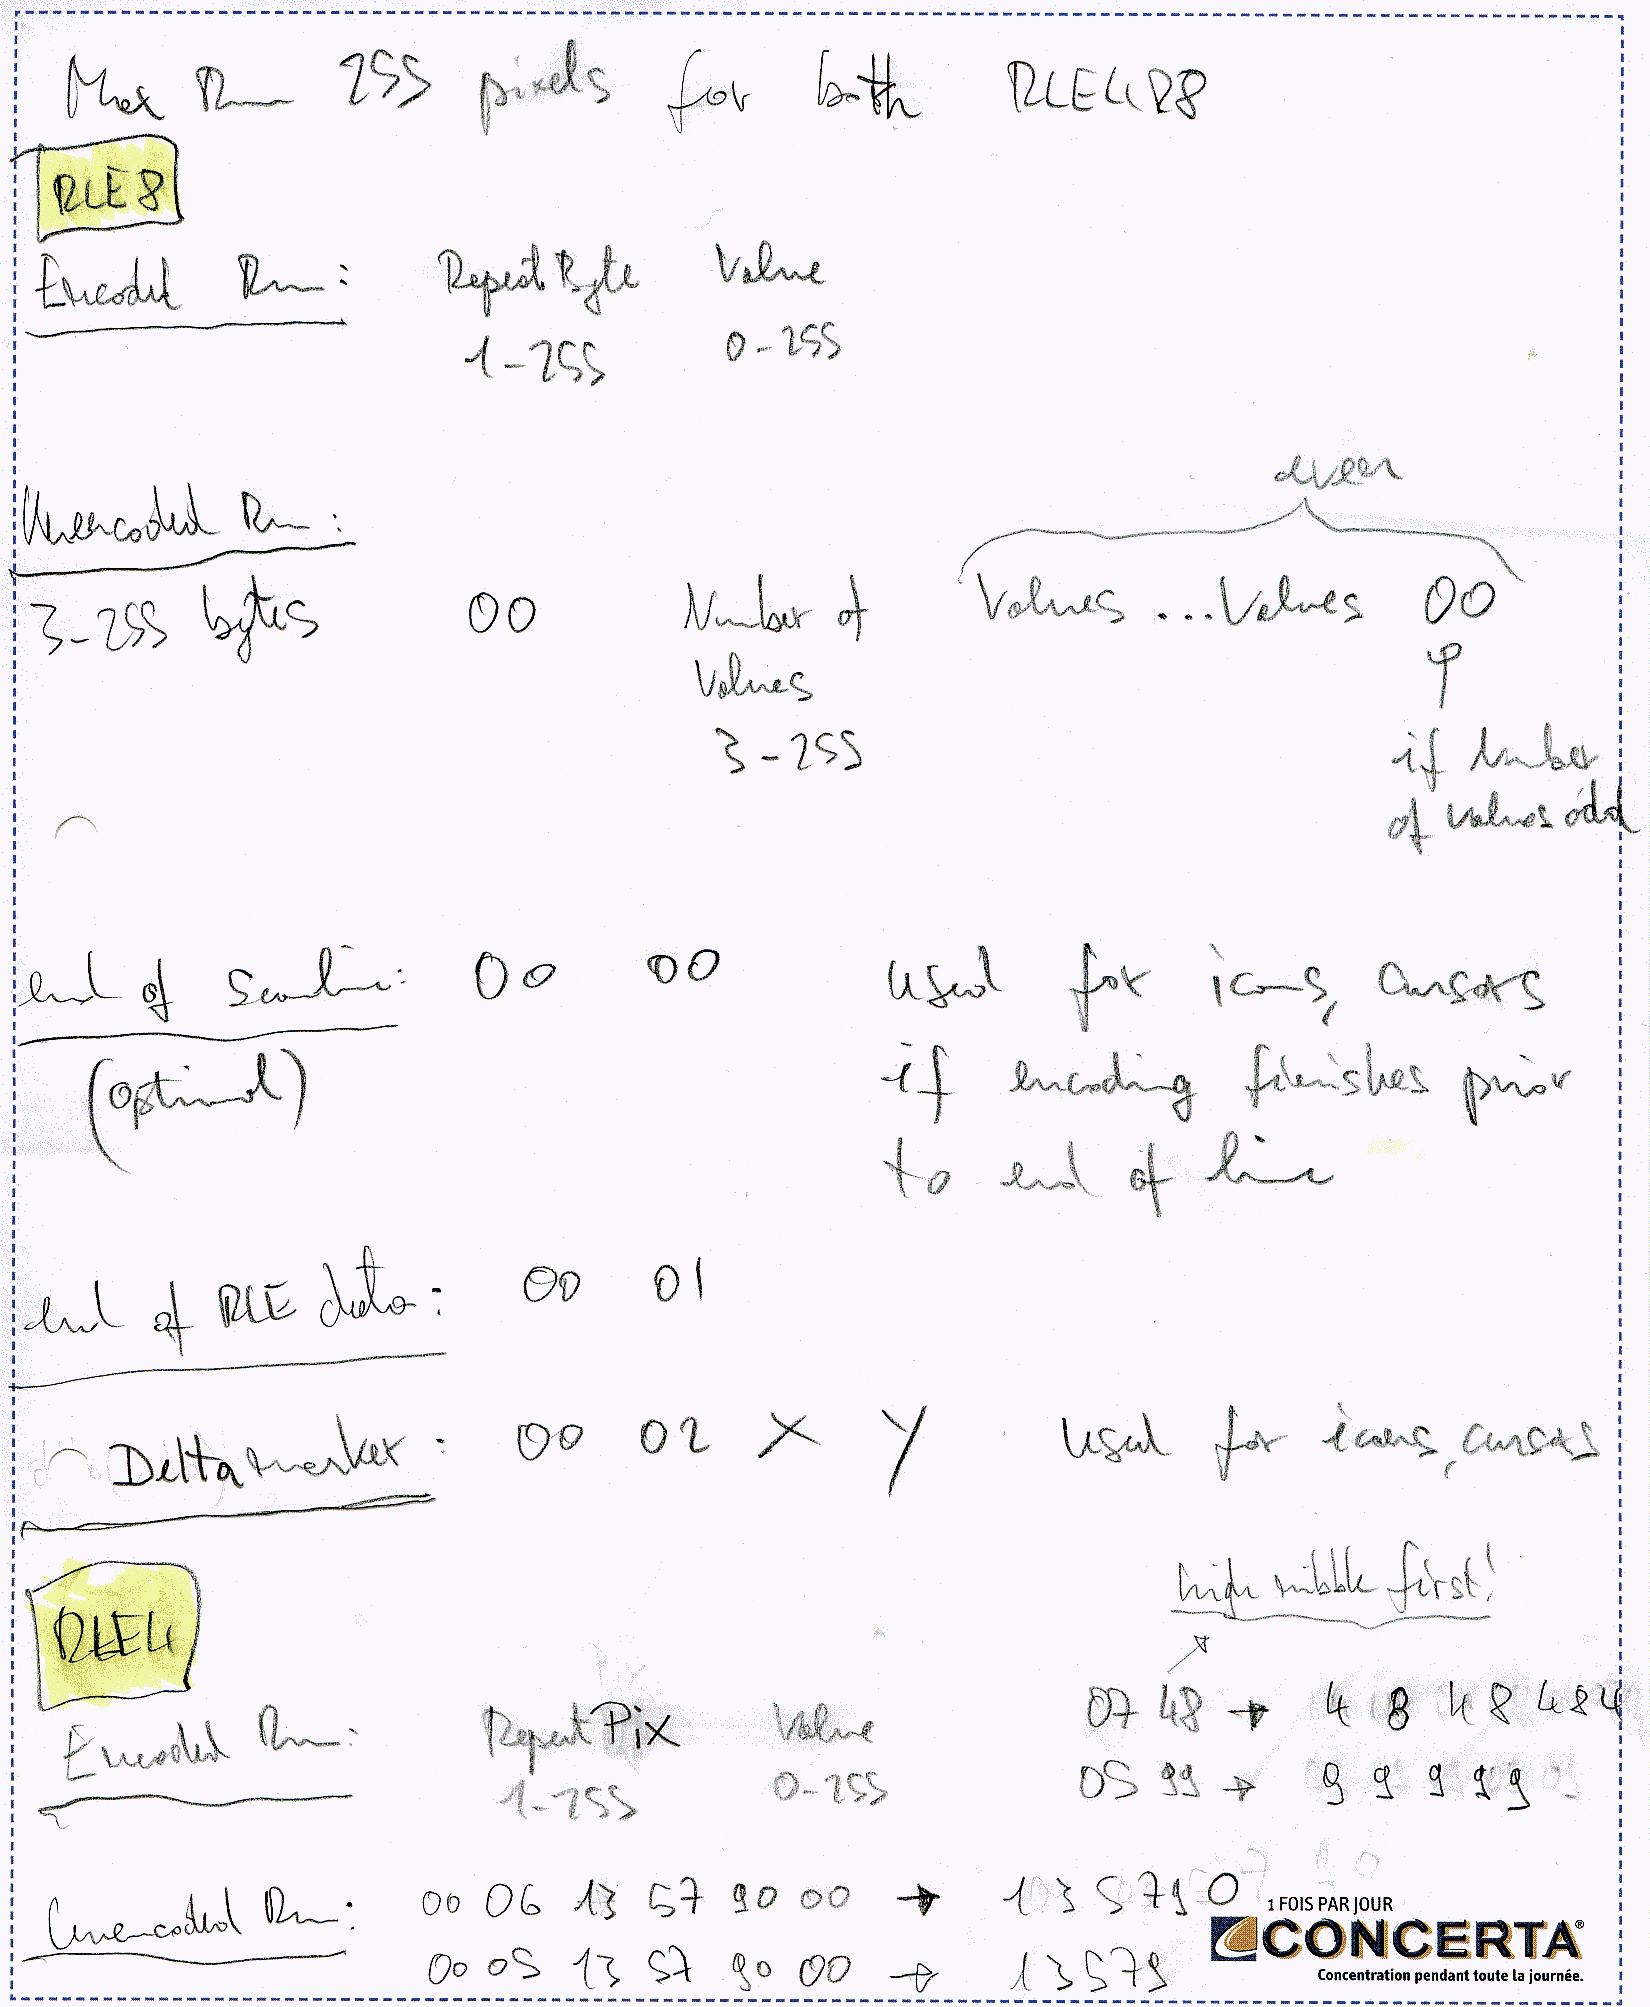 Max Run 255 pixels for both RLE4&8
RLE8
Encoded Run: Repeat Byte Value
1-255 0-255
even
Unencoded Run:
3-255 bytes 00 Number of Values ... Values 00
Values
3-255
if number
of values odd
end of Scanline: 00 00 used for icons, cursors
(optional) if encoding finishes prior
to end of line
end of RLE data: 00 01
Delta marker: 00 02 X Y used for icons, cursors
high nibble first!
RLE4
Encoded Run: Repeat Pix Value 07 48 → 4 8 4 8 4 8 4
1-255 0-255 05 99 → 9 9 9 9 9
Unencoded Run: 00 06 13 57 90 00 → 1 3 5 7 9 0
00 05 13 57 90 00 → 1 3 5 7 9
1 FOIS PAR JOUR
CONCERTA®
Concentration pendant toute la journée.